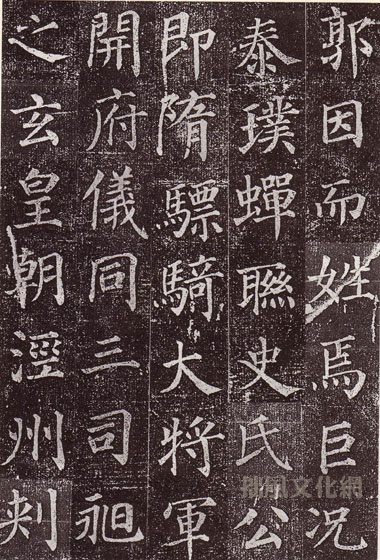 郭因而姓焉巨况
泰璞蟬聯史氏公
即隋驃騎大將軍
開府儀同三司昶
之玄皇朝涇州刾
文化網